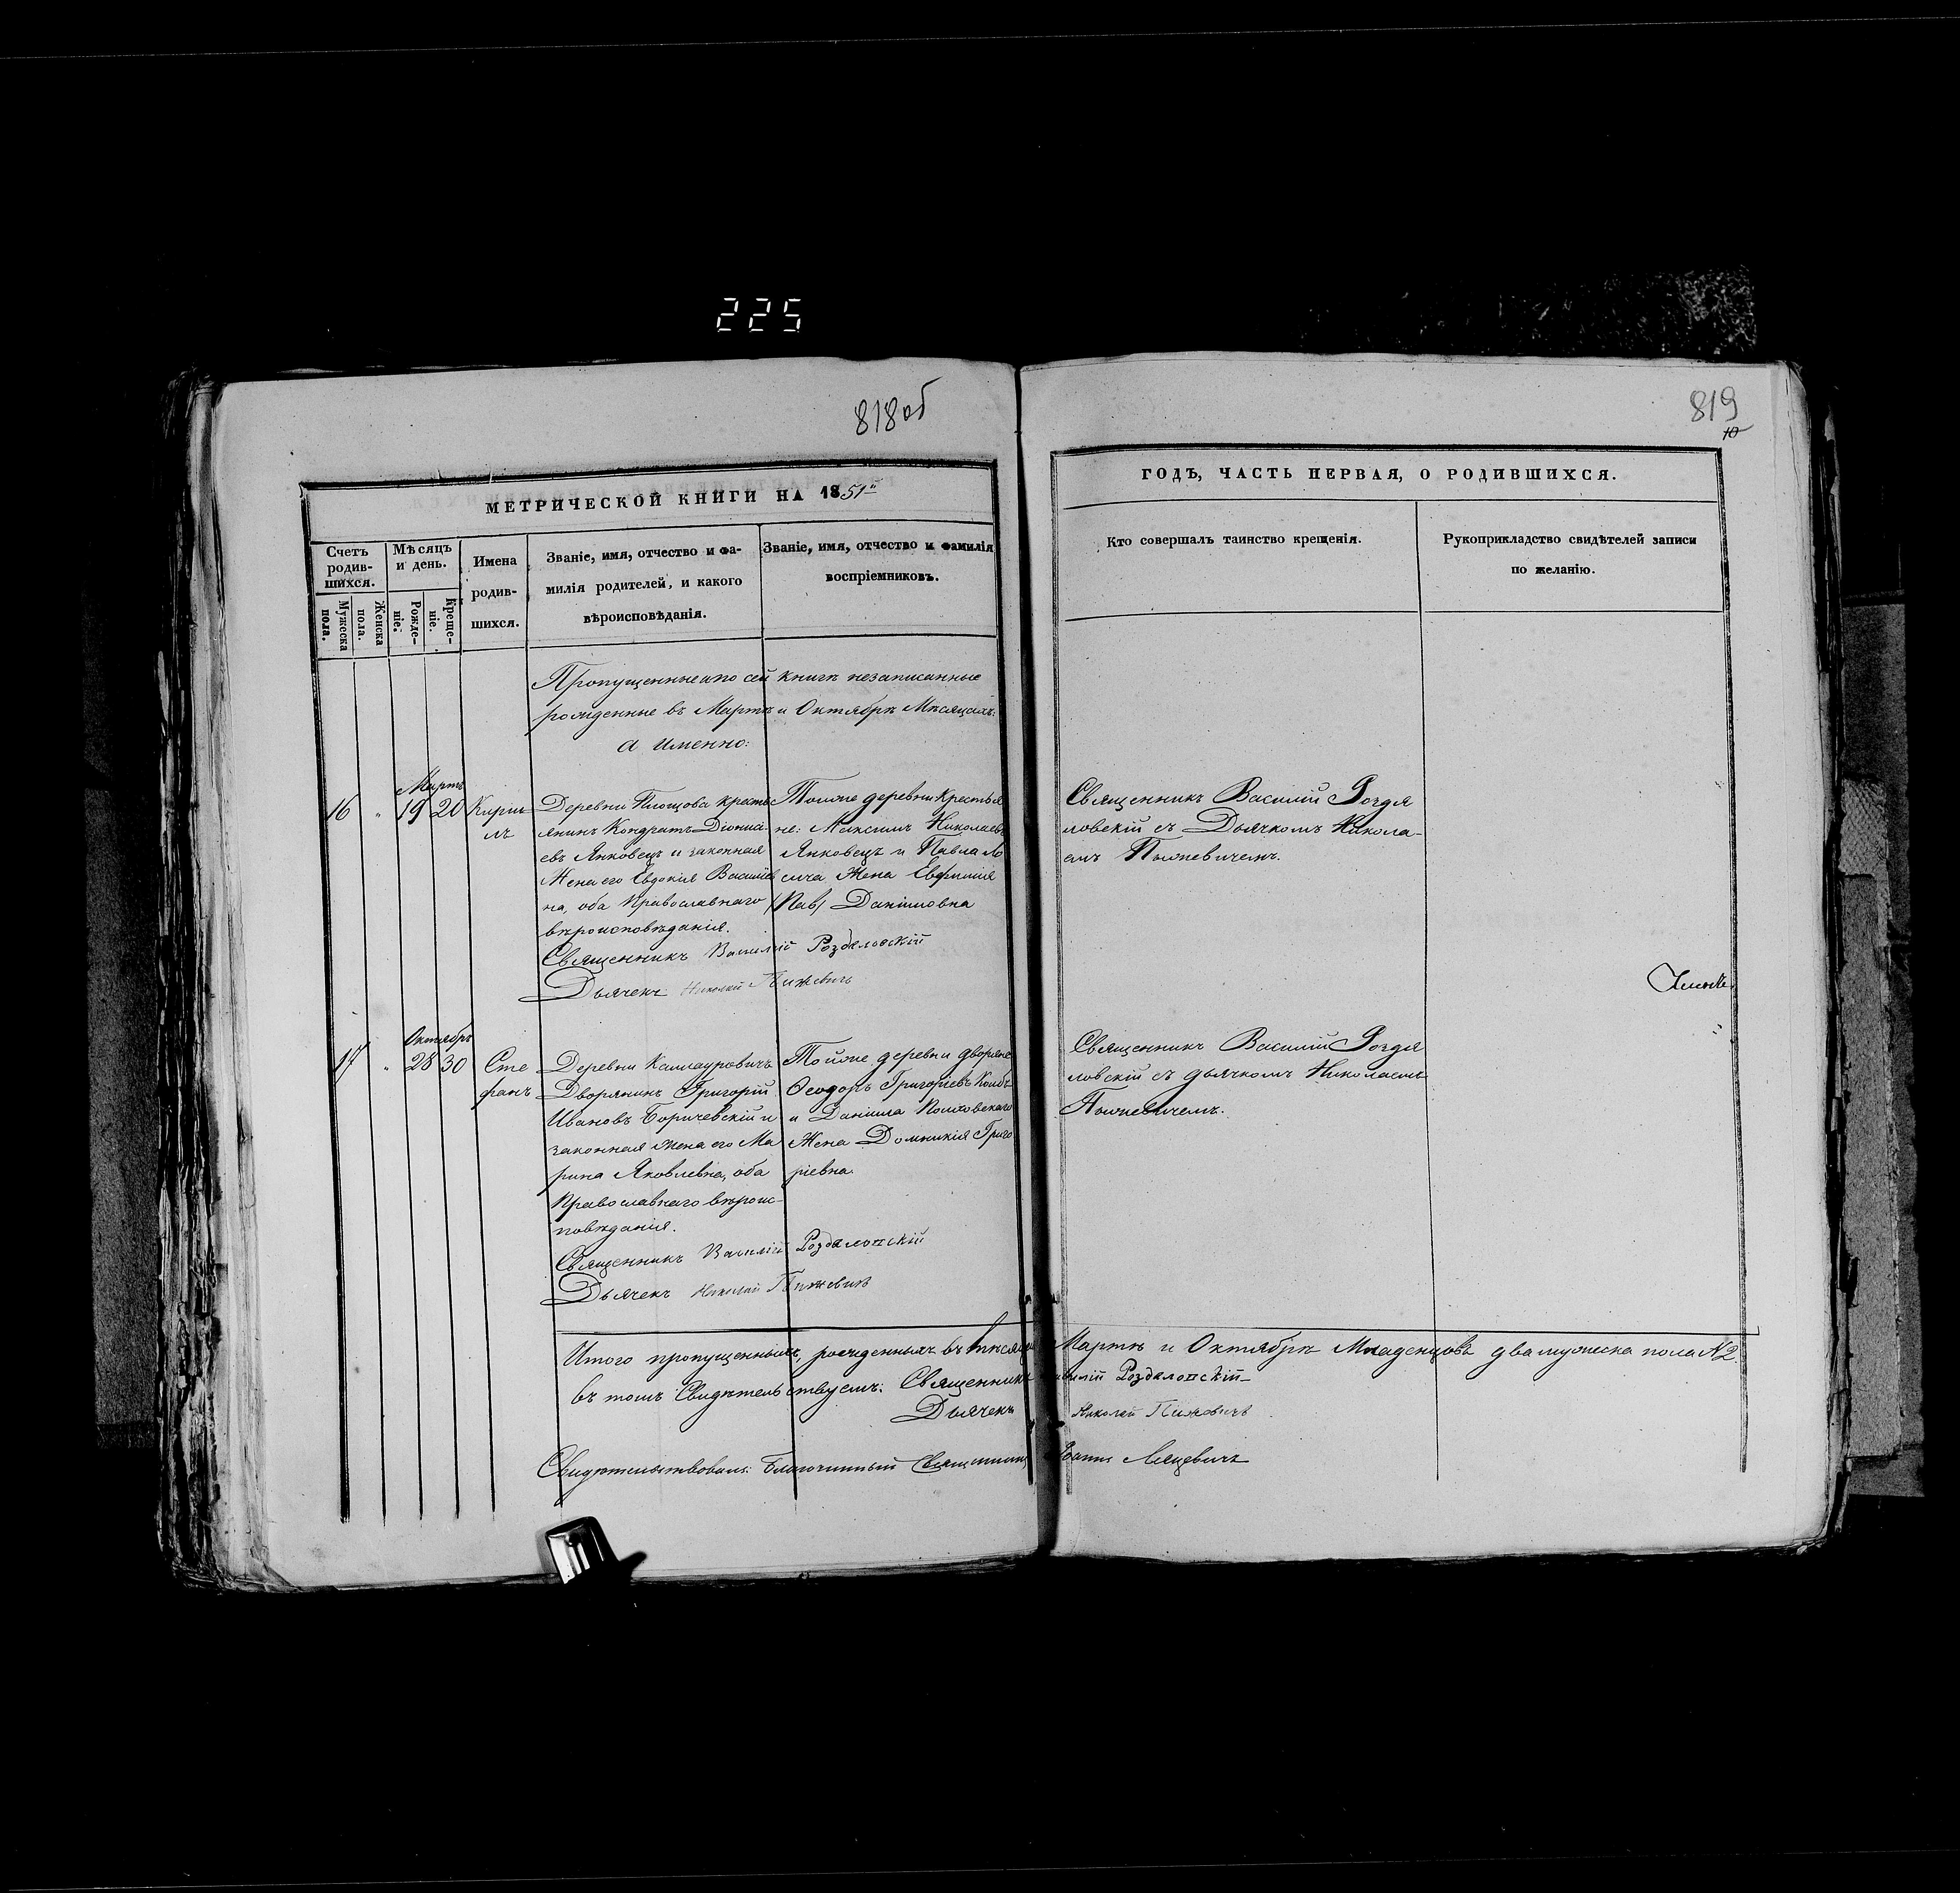 225
818об
819
10
МЕТРИЧЕСКОЙ КНИГИ НА 1851й
ГОДЪ, ЧАСТЬ ПЕРВАЯ, О РОДИВШИХСЯ.
Счетъ
родив-
шихся.
Мужеска
пола.
Женска
пола.
Мѣсяцъ
и день.
Рожде-
ніе.
Креще-
ніе.
Имена
родив-
шихся.
Званіе, имя, отчество и фа-
милія родителей, и какого
вѣроисповѣданія.
Званіе, имя, отчество и фамилія
воспріемниковъ.
Кто совершалъ таинство крещенія.
Рукоприкладство свидѣтелей записи
по желанію.
Пропущенные и по сей книгѣ незаписанные
рожденные въ Мартѣ и Октябрѣ Мѣсяцахъ:
а именно:
Мартъ
16 " 19 20
Кирил
лъ
Деревни Площова кресть
янинъ Кондратъ Діонисі-
евъ Янковецъ и законная
Жена его Евдокія Василіев
на, оба Православнаго
вѣроисповѣданія.
Священникъ Василій Роздяловскій
Дьячекъ Николай Пижевичъ
Тойже деревни Крестья
не: Максимъ Николаевъ
Янковецъ и Павла
Жена Евфимія
Даніиловна
Священникъ Василій Роздя
ловскій съ Дьячкомъ Никола-
емъ Пыжевичемъ.
Октябрь
17 " 28 30
Сте
фанъ
Деревни Каллауровичъ
Дворянинъ Григорій
Ивановъ Боричевскій и
законная жена его Ма
рина Яковлевна, оба
Православнаго вѣроис-
повѣданія.
Священникъ Василій Роздяловскій
Дьячекъ Николай Пижевичъ
Тойже деревни дворяне
Ѳеодоръ Григоріевъ Колбъ
и Даніила Полховскаго
Жена Домникія Григо
ріевна.
Священникъ Василій Роздя
ловскій съ дьячкомъ Николаемъ
Пыжевичемъ.
Итого пропущенныхъ, рожденныхъ въ мѣсяцѣ Мартѣ и Октябрѣ Младенцовъ два мужеска пола №2.
въ томъ Свидѣтельствуемъ: Священникъ Василій Роздяловскій
Дьячекъ Николай Пижевичъ
Свидѣтельствовалъ: Благочинный Священникъ Іоаннъ Ляцевичъ